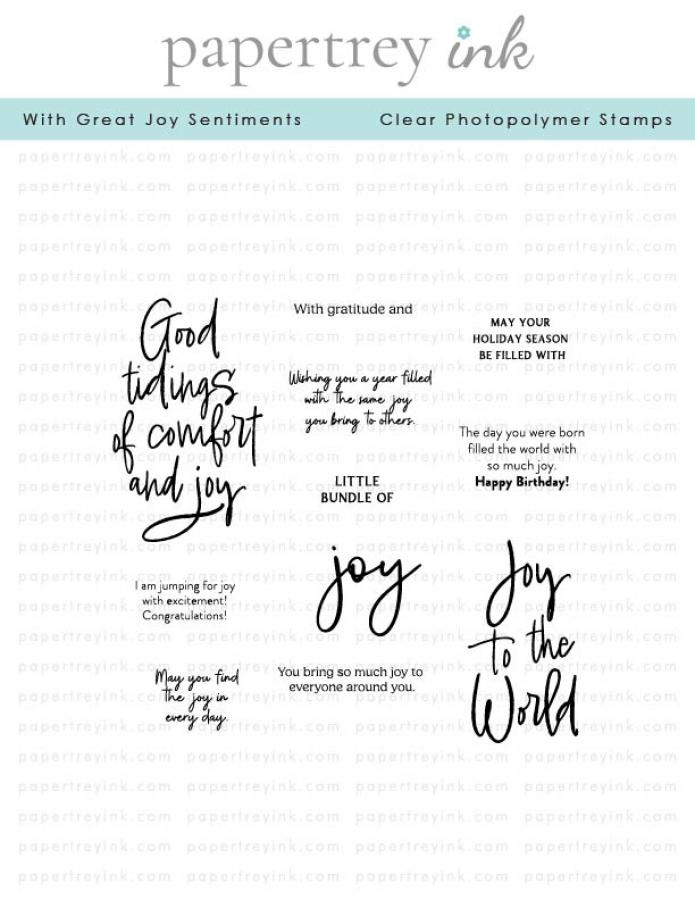 papertrey ink
With Great Joy Sentiments
Clear Photopolymer Stamps
papertreyink.com papertreyink.com papertreyink.com papertreyink.com
Good
tidings
of comfort
and joy
With gratitude and
MAY YOUR
HOLIDAY SEASON
BE FILLED WITH
Wishing you a year filled
with the same joy
you bring to others.
The day you were born
filled the world with
so much joy.
Happy Birthday!
LITTLE
BUNDLE OF
joy
Joy
to the
World
I am jumping for joy
with excitement!
Congratulations!
May you find
the joy in
every day.
You bring so much joy to
everyone around you.